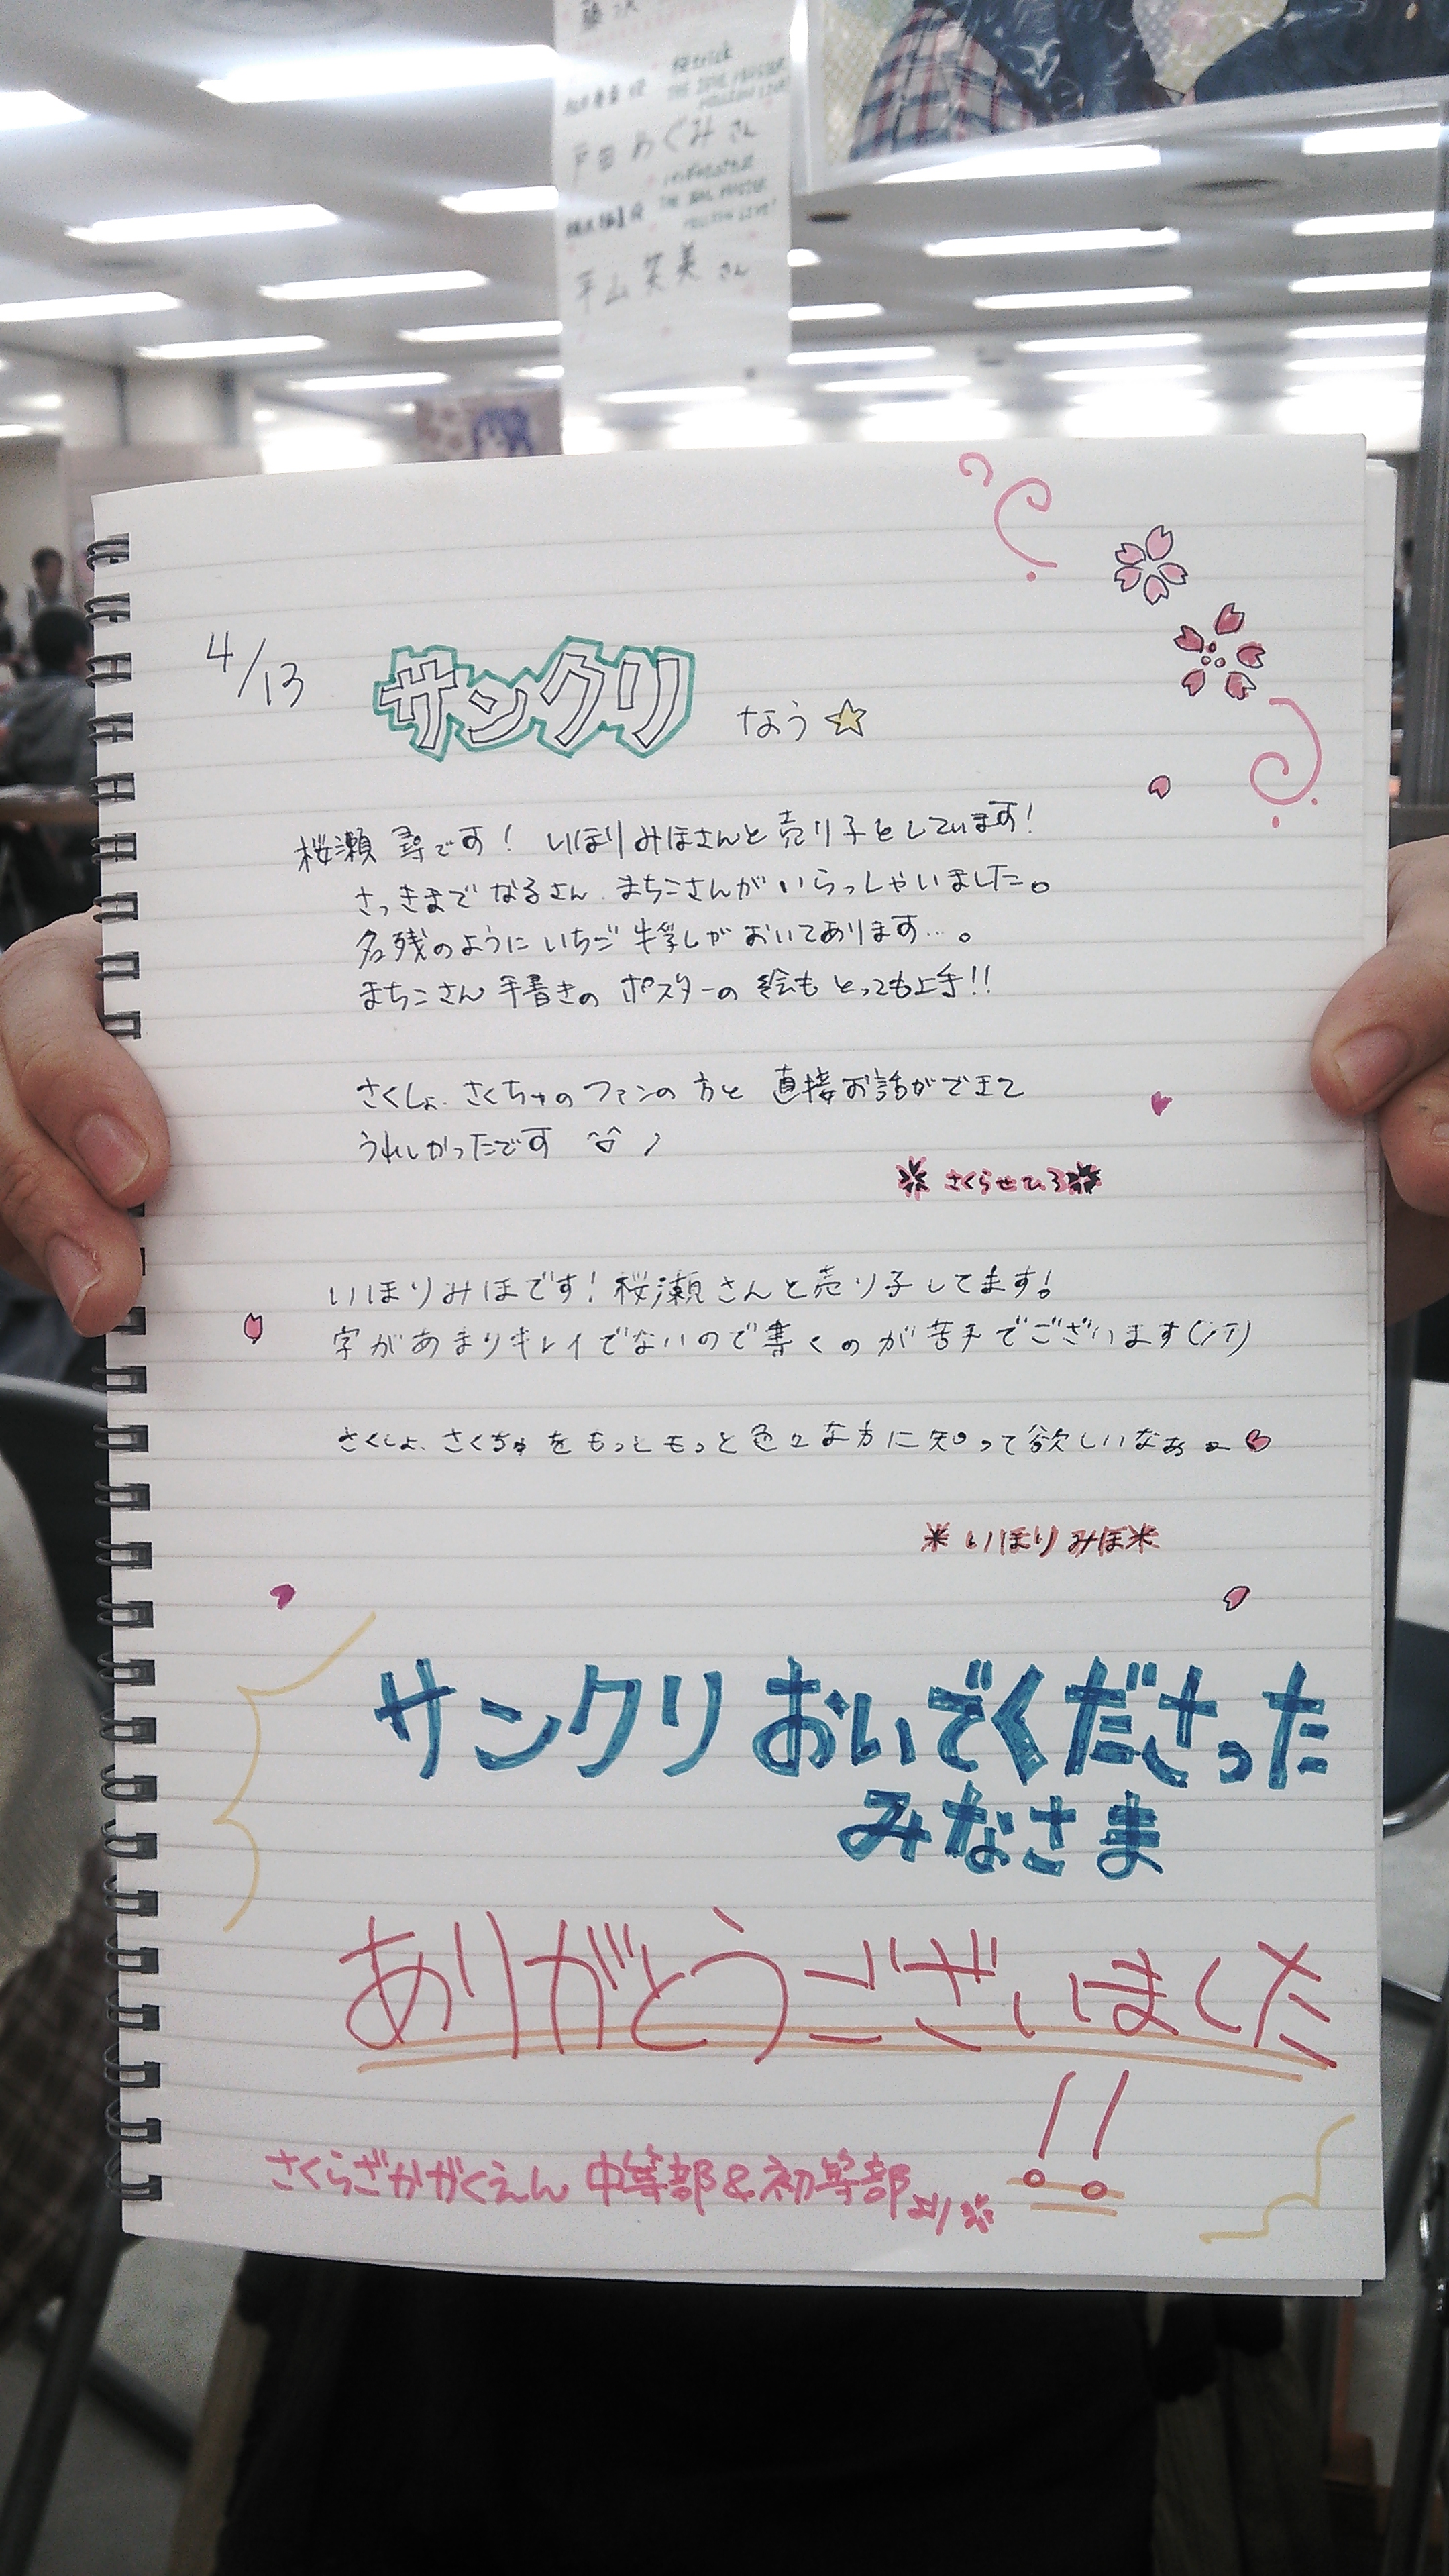 戸田めぐみさん
THE IDOL M@STER
MILLION LIVE!
平山笑美さん
4/13 サンクリ なう☆
桜瀬 尋です！ いほりみほさんと売り子をしています！
さっきまで なるさん、まちこさんがいらっしゃいました。
名残のように いちご牛乳が おいてあります…。
まちこさん 手書きの ポスターの 絵も とっても上手!!
さくしょ、さくちゅのファンの方と 直接お話ができて
うれしかったです ^o^ノ
さくらせひろ
いほりみほです！桜瀬さんと売り子してます！
字があまりキレイでないので書くのが苦手でございます(ノT)
さくしょ、さくちゅをもっともっと色々な方に知って欲しいなぁー
※いほりみほ※
サンクリ おいでくださった
みなさま
ありがとうございました
!!
さくらざかがくえん 中等部&初等部より